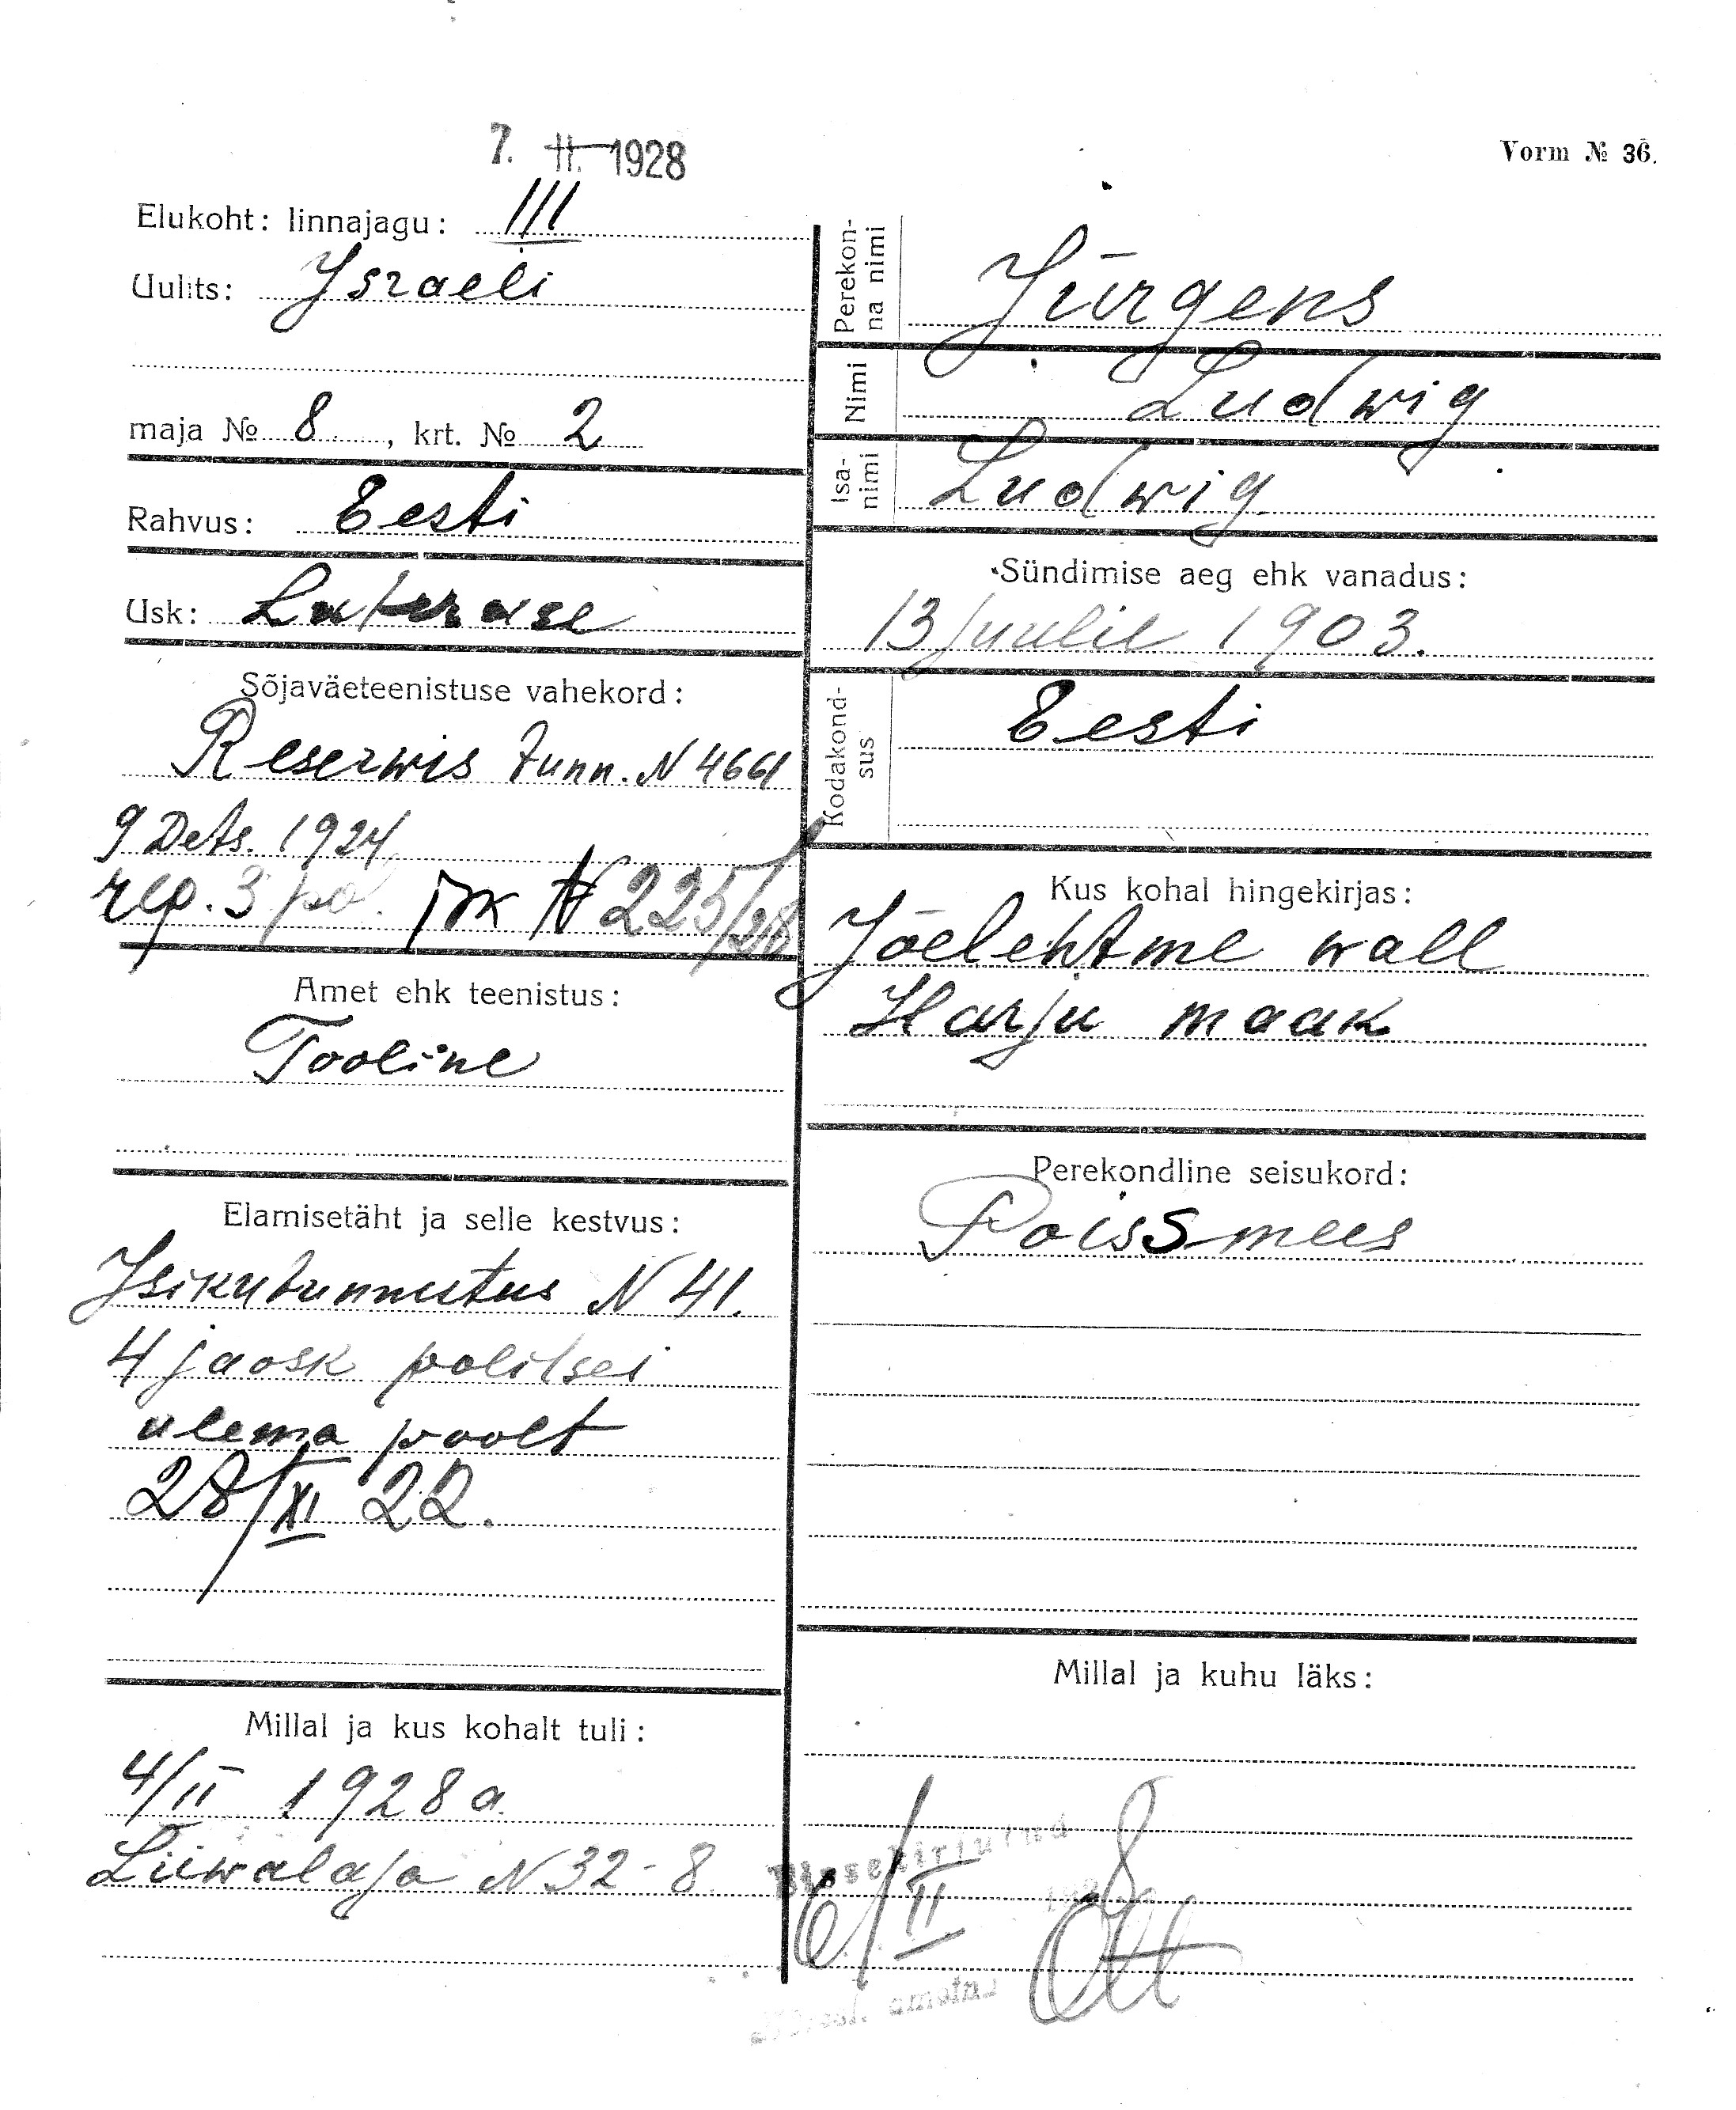 7. II. 1928
Vorm № 36.
Elukoht: linnajagu: III
Uulits: Israeli
maja № 8, krt. № 2
Rahvus: Eesti
Usk: Luteruse
Sõjaväeteenistuse vahekord:
Reserwis tunn. N 4661
9 Dets. 1924
rep. 3 po. jrk N 225/28
Amet ehk teenistus:
Tööline
Elamisetäht ja selle kestvus:
Isikutunnistus N 41.
4 jaosk politsei
ülema poolt
28/XI 22.
Millal ja kus kohalt tuli:
4/II 1928 a.
Liiwalaja N 32-8
Perekonna nimi
Jürgens
Nimi
Ludwig
Isanimi
Ludwig.
Sündimise aeg ehk vanadus:
13 juulil 1903.
Kodakondsus
Eesti
Kus kohal hingekirjas:
Jõelehtme wall
Harju maak
Perekondline seisukord:
Poissmees
Millal ja kuhu läks:
Sissekirjutud
6/II 8
Ott